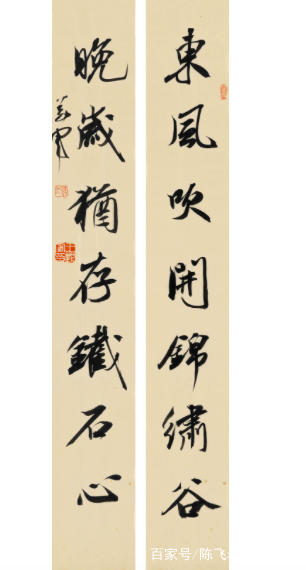 東風吹開錦繡谷
晚歲猶存鐵石心
百家号/陈飞